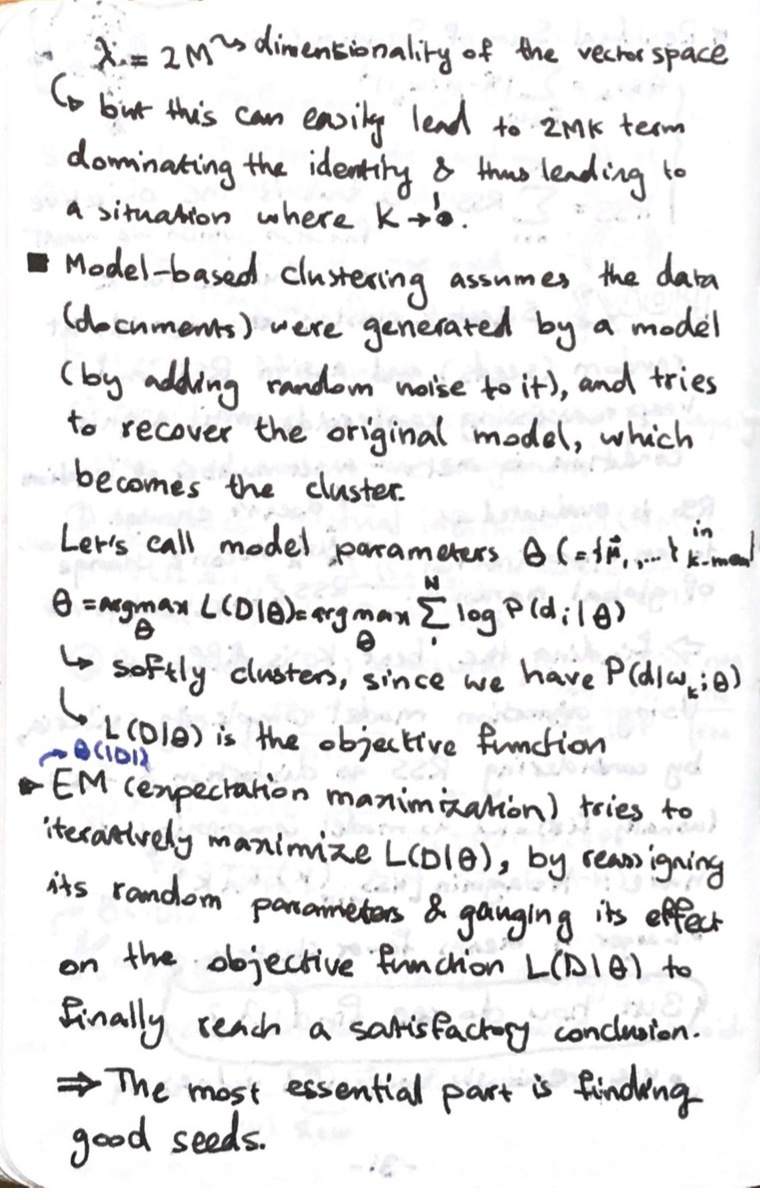 - λ = 2M ⇝ dimensionality of the vector space
↳ but this can easily lead to 2MK term
dominating the identity & thus leading to
a situation where K → 1.
■ Model-based clustering assumes the data
(documents) were generated by a model
(by adding random noise to it), and tries
to recover the original model, which
becomes the cluster.
Let's call model parameters θ (={μ⃗,...} in k-mean)
θ = argmax_θ L(D|θ) = argmax_θ Σ_i^N log P(d_i|θ)
↳ softly clusters, since we have P(d|ω_k;θ)
↳ L(D|θ) is the objective function
→ θ(|D|)
► EM (expectation maximization) tries to
iteratively maximize L(D|θ), by reassigning
its random parameters & gauging its effect
on the objective function L(D|θ) to
finally reach a satisfactory conclusion.
⇒ The most essential part is finding
good seeds.